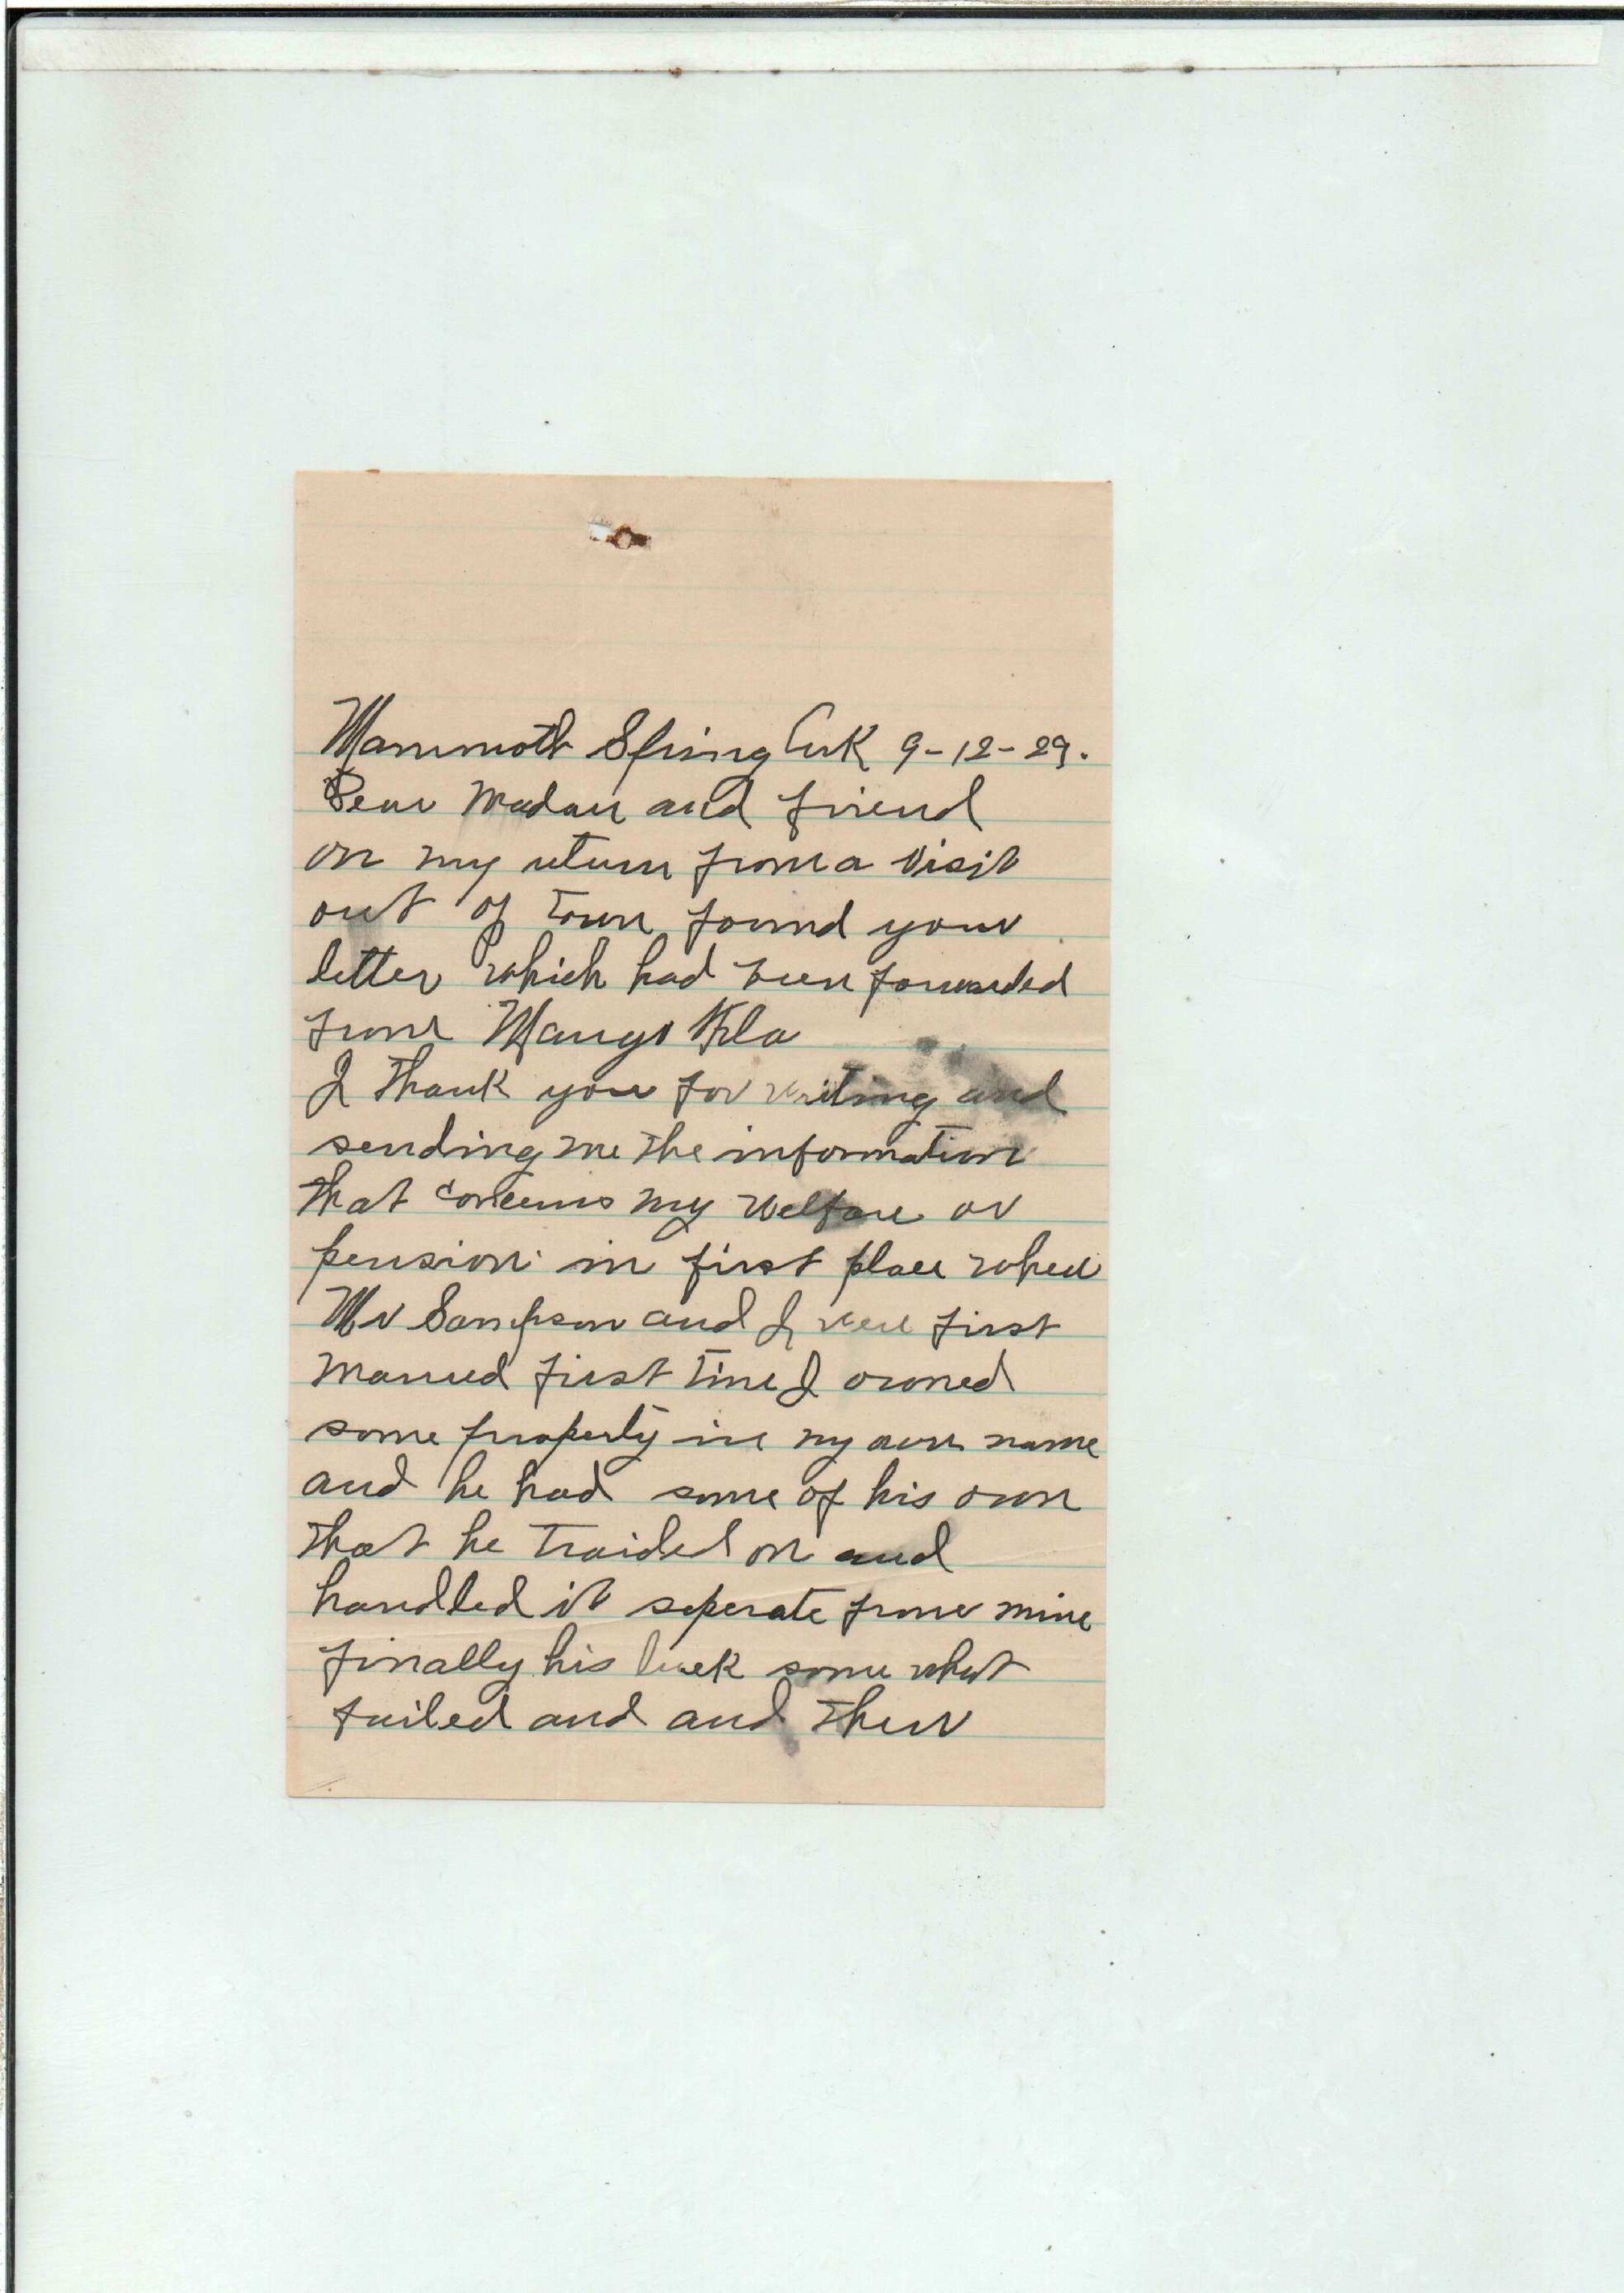 Mammoth Spring Ark 9-12-29.
Dear Madam and friend
on my return from a visit
out of town found your
letter which had been forwarded
from Mango Fla
I thank you for writing and
sending me the information
that concerns my welfare or
pension in first place when
Mr Sampson and I were first
married first time I owned
some property in my own name
and he had some of his own
that he traided on and
handled it seperate from mine
finally his luck some what
failed and and then